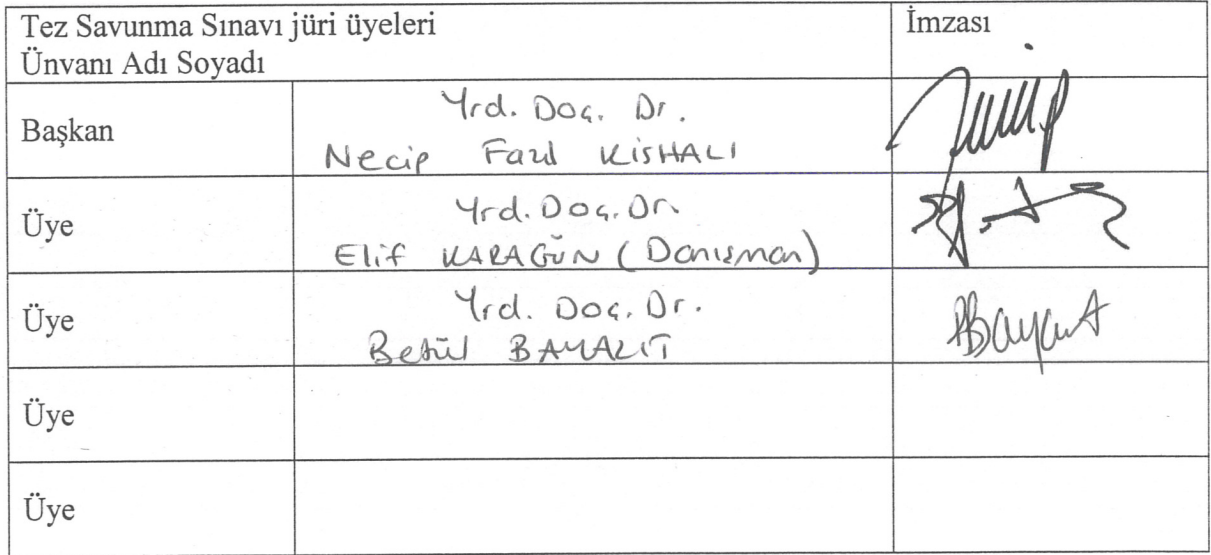 Tez Savunma Sınavı jüri üyeleri
Ünvanı Adı Soyadı
İmzası
Başkan
Yrd. Doç. Dr.
Necip Fazıl KİSHALI
Üye
Yrd. Doç. Dr.
Elif KARAGÜN (Danışman)
Üye
Yrd. Doç. Dr.
Betül BAYAZIT
Üye
Üye